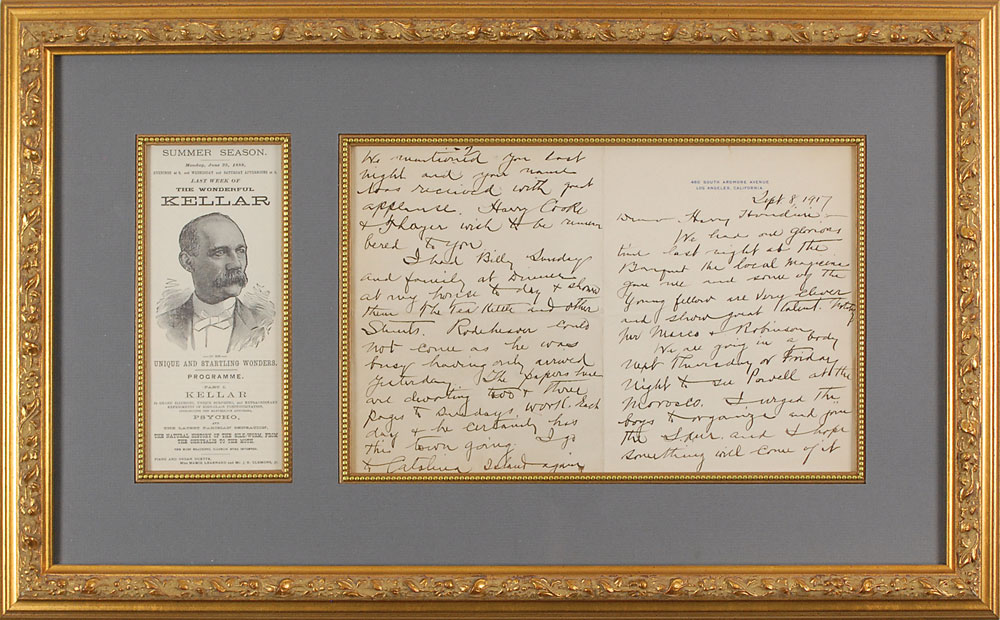 SUMMER SEASON.
LAST WEEK OF
THE WONDERFUL
KELLAR
IN HIS
UNIQUE AND STARTLING WONDERS.
PROGRAMME.
PART I.
KELLAR
PSYCHO,
AND
THE NATURAL HISTORY OF THE SILK-WORM, FROM
THE CHRYSALIS TO THE MOTH.
We mentioned you last
night and your name
was received with great
applause. Harry Cooke
& Thayer wish to be remem
bered to you
I had Billy Sunday
and family at Dinner
at my house to day & show
them the Tea Kettle and other
Stunts. Rodeheaver could
not come as he was
busy having only arrived
yesterday. The papers here
are devoting two & three
pages to Sundays work. Each
day & he certainly has
this town going. I go
to Catalina Island again
460 SOUTH ARDMORE AVENUE
LOS ANGELES, CALIFORNIA
Sept 8, 1917
Harry Houdini –
We had one glorious
time last night at the
Banquet the local magicians
gave me and some of the
young fellow are very clever
and show great talent.
Marco & Robinson
We all going in a body
next Thursday or Friday
night to see Powell at the
Morosco. I urged the
boys to organize and join
the and I hope
something will come of it